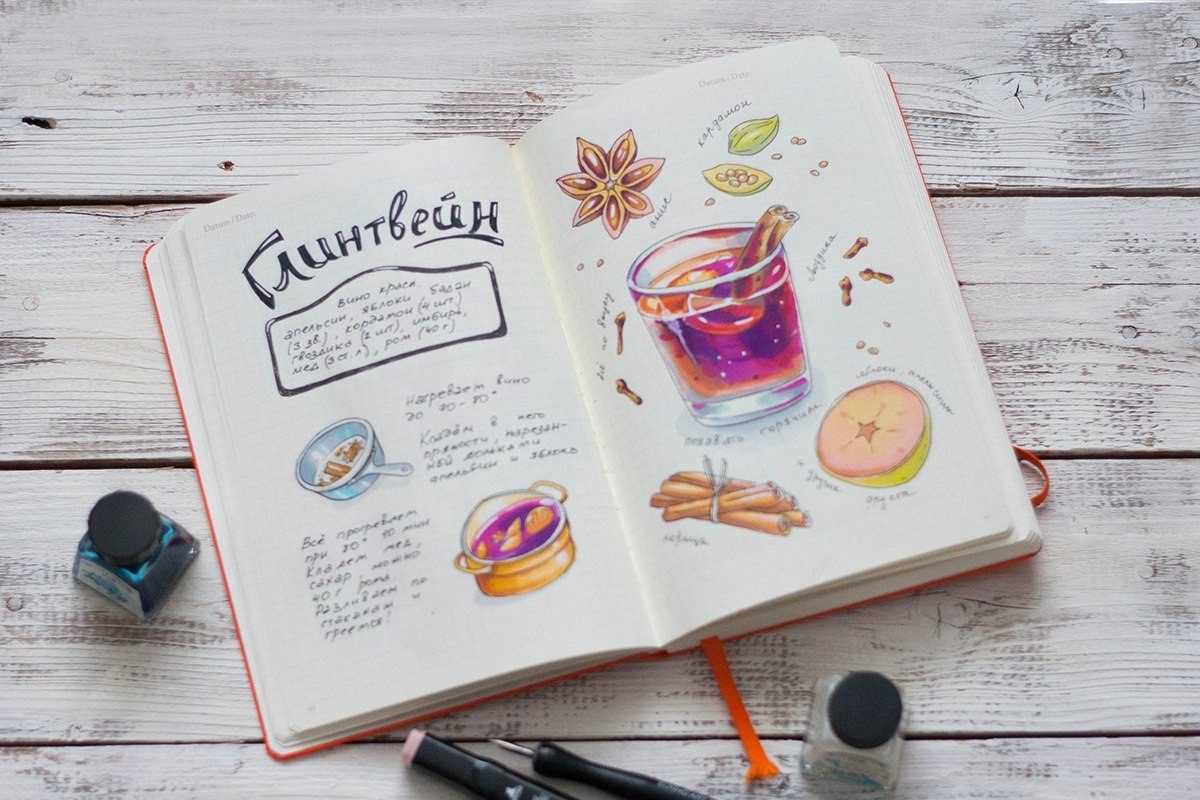 Datum / Date:
Глинтвейн
вино красн.
апельсин, яблоки, бадан
(3 зв.), кардамон (4 шт.)
гвоздика (2 шт), имбирь,
мёд (3 ст.л), ром (40 г)
Нагреваем вино
до 70-80°
Кладём в него
пряности, нарезан-
ный дольками
апельсин и яблоко
Всё прогреваем
при 80° 10 мин
Кладем мед,
сахар, можно
40 г рома.
Разливаем по
стаканам и
греемся!
Datum / Date:
кардамон
анис
гвоздика
всё по вкусу
яблоки, апельсины
подавать горячим
и другие
фрукты
корица